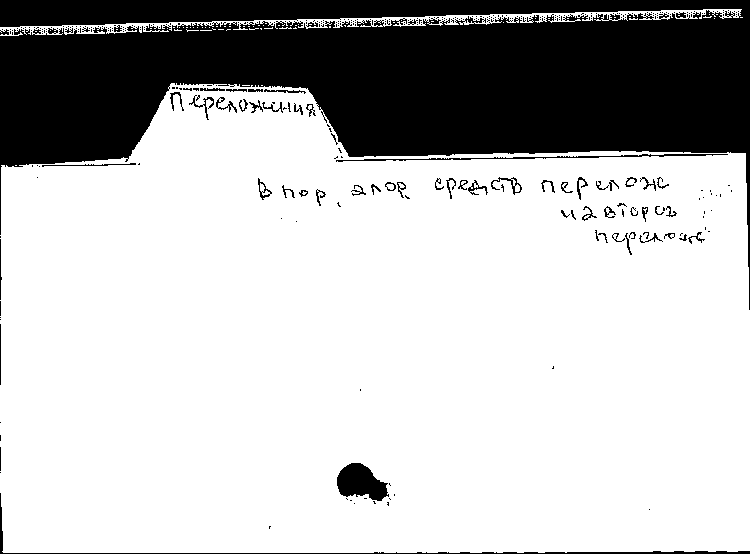 Переложения
В пор. алф. средств перелож
и авторов
перелож